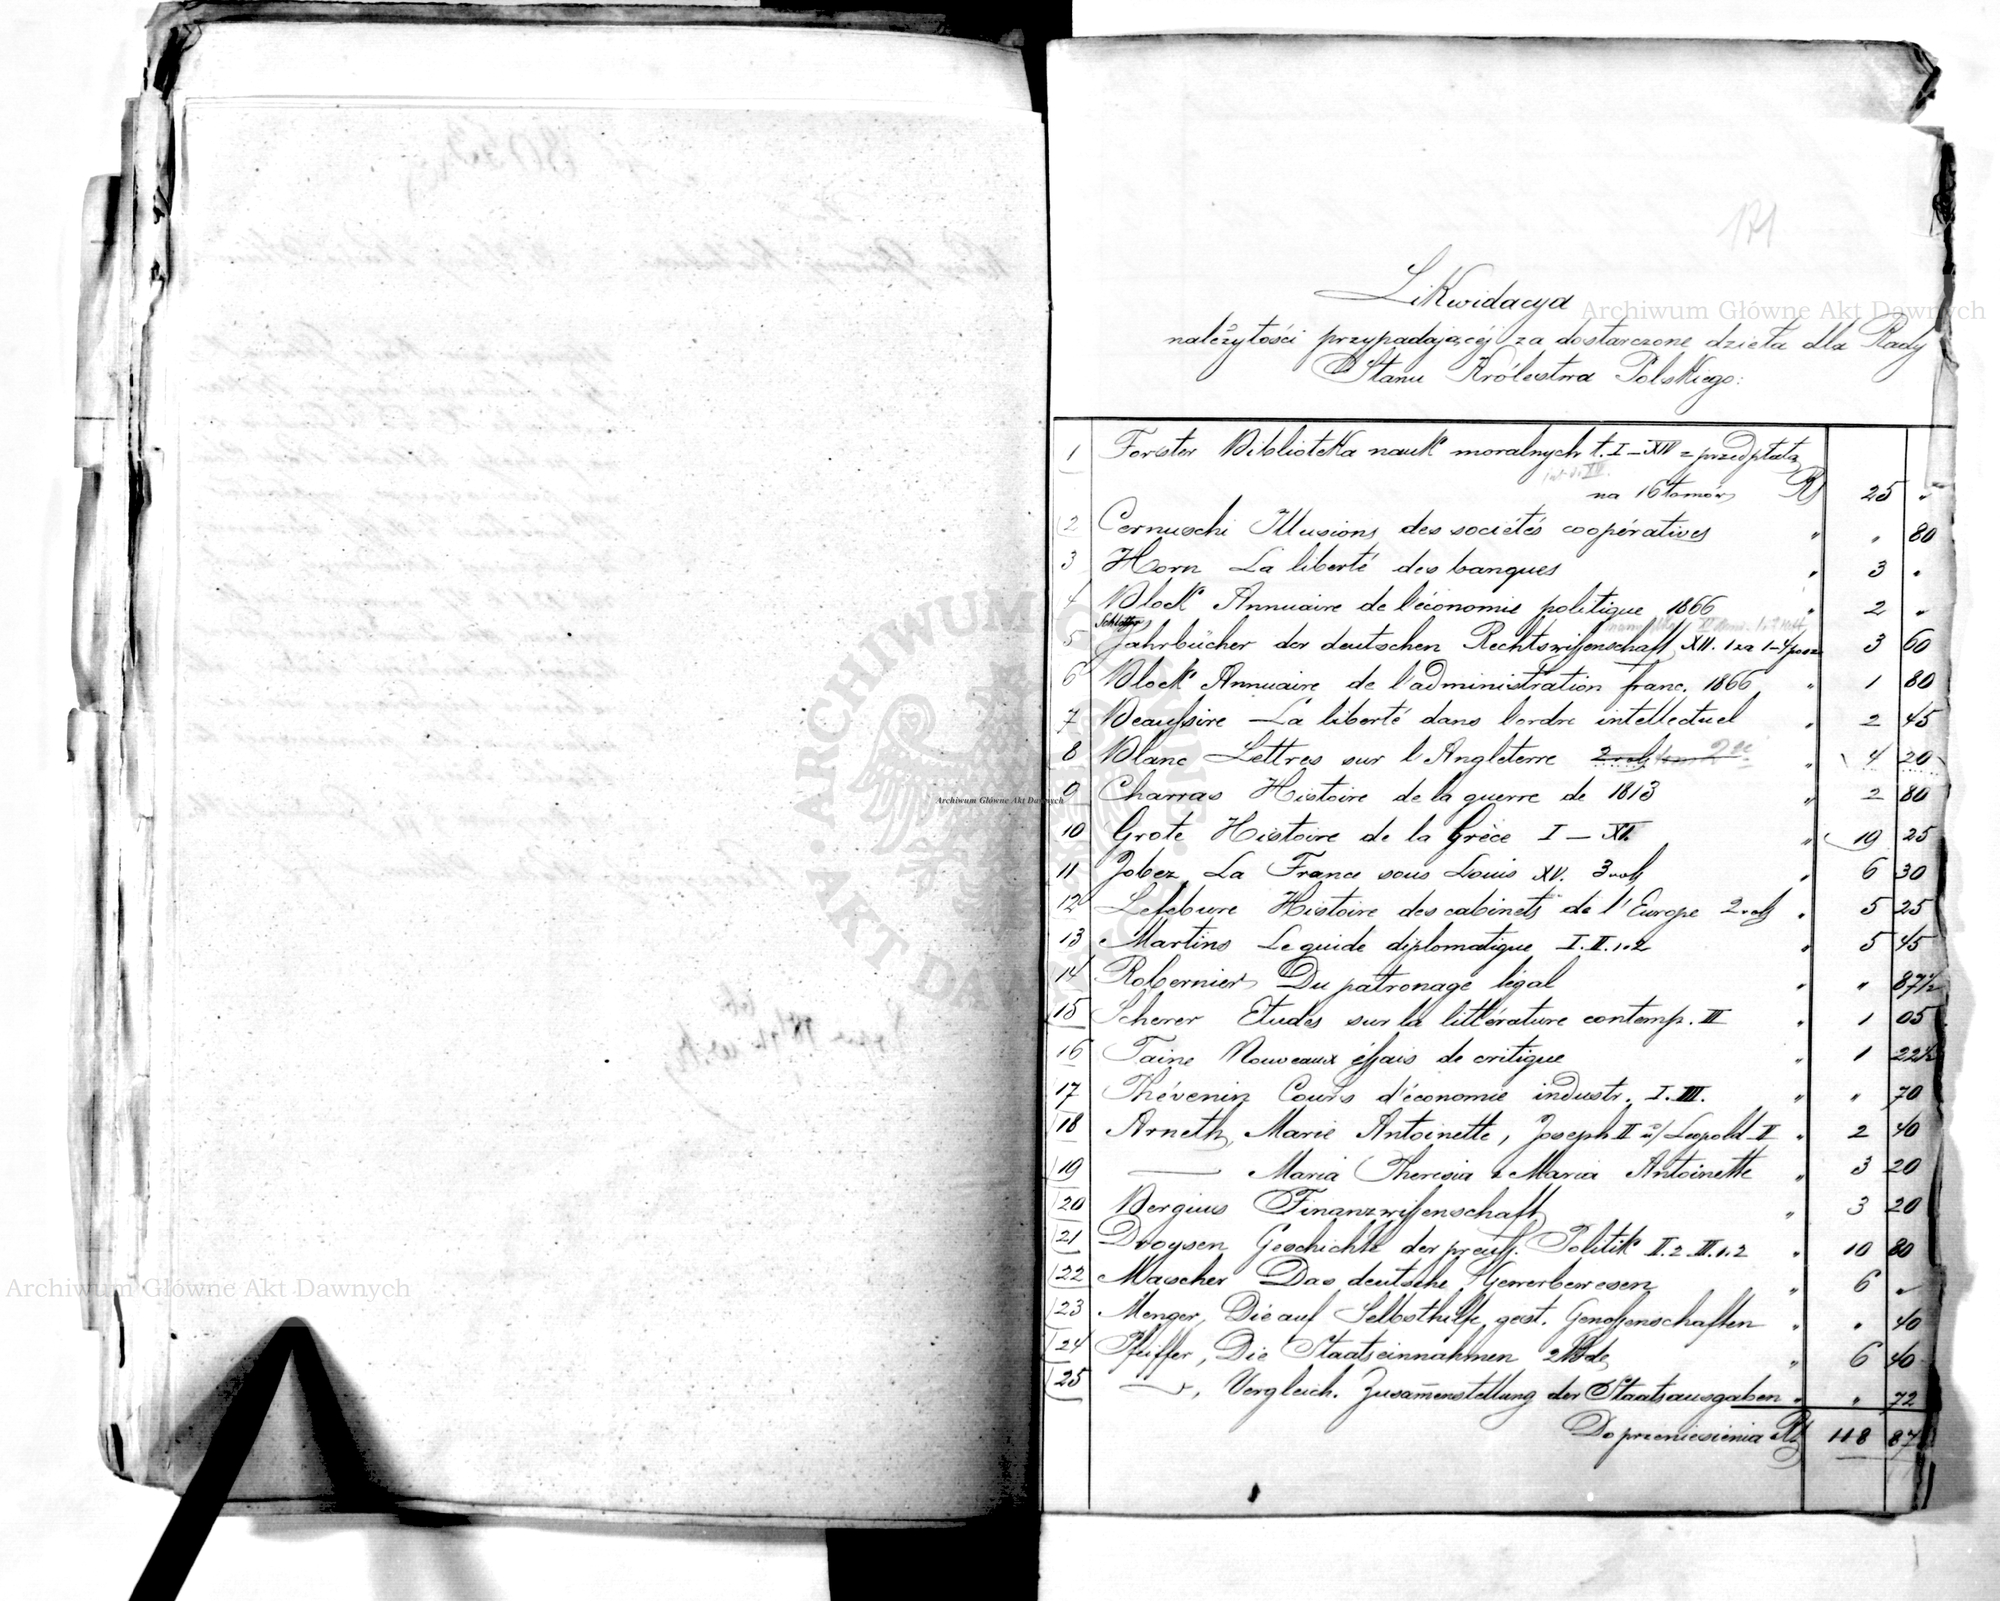 171
Likwidacya
należytości przypadającéj za dostarczone dzieła dla Rady
Stanu Królestwa Polskiego:
1 Forster Biblioteka nauk moralnych t. I–XIV z przedpłatą
na 16 tomów Rs 25 "
2 Cernuschi Illusions des sociétés coopératives " " 80
3 Horn La liberté des banques " 3 "
4 Block Annuaire de l'économie politique 1866 " 2 "
Schletter
5 Jahrbücher der deutschen Rechtswissenschaft XII. 1 za 1–4 posz 3 60
6 Block Annuaire de l'administration franc. 1866 " 1 80
7 Beaussire La liberté dans l'ordre intellectuel " 2 45
8 Blanc Lettres sur l'Angleterre 2 vol " 4 20
9 Charras Histoire de la guerre de 1813 " 2 80
10 Grote Histoire de la Grèce I – XI. " 19 25
11 Jobez La France sous Louis XV. 3 vol " 6 30
12 Lefebvre Histoire des cabinets de l'Europe 2 vol " 5 25
13 Martins Le guide diplomatique I. II. 1.2 " 5 45
14 Robernier Du patronage légal " " 87½
15 Scherer Etudes sur la littérature contemp. III " 1 05
16 Taine Nouveaux éssais de critique " 1 22½
17 Thévenin Cours d'économie industr. I. III. " " 70
18 Arneth, Marie Antoinette, Joseph II u/ Leopold II " 2 40
19 — Maria Theresia & Maria Antoinette " 3 20
20 Bergius Finanzwissenschaft " 3 20
21 Droysen Geschichte der preuss. Politik II. 2 III. 1.2 " 10 80
22 Mascher Das deutsche Gewerbewesen " 6 "
23 Menger, Die auf Selbsthilfe gest. Genossenschaften " " 40
24 Pfeiffer, Die Staatseinnahmen 2 Bde " 6 40
25 —, Vergleich. Zusam̄enstellung der Staatsausgaben " " 72
Do przeniesienia Rs 118 87
Archiwum Główne Akt Dawnych
Archiwum Główne Akt Dawnych
Archiwum Główne Akt Dawnych